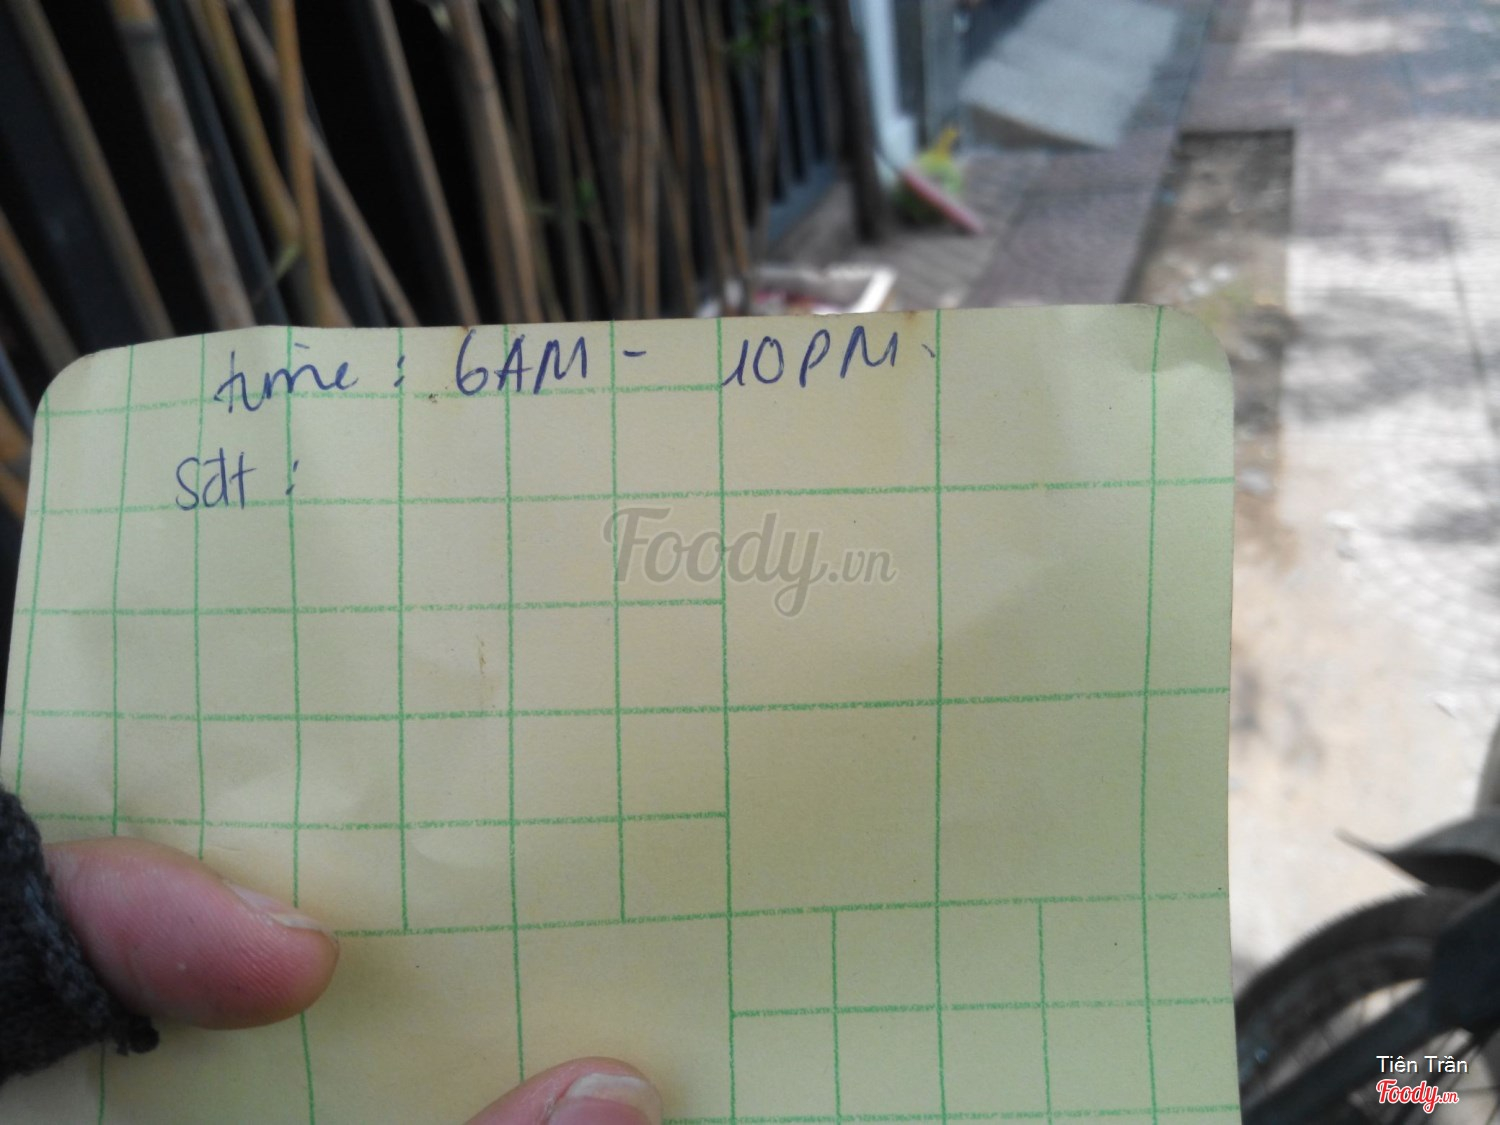 time : 6AM - 10PM.
sđt :
Foody.vn
Tiên Trần
Foody.vn